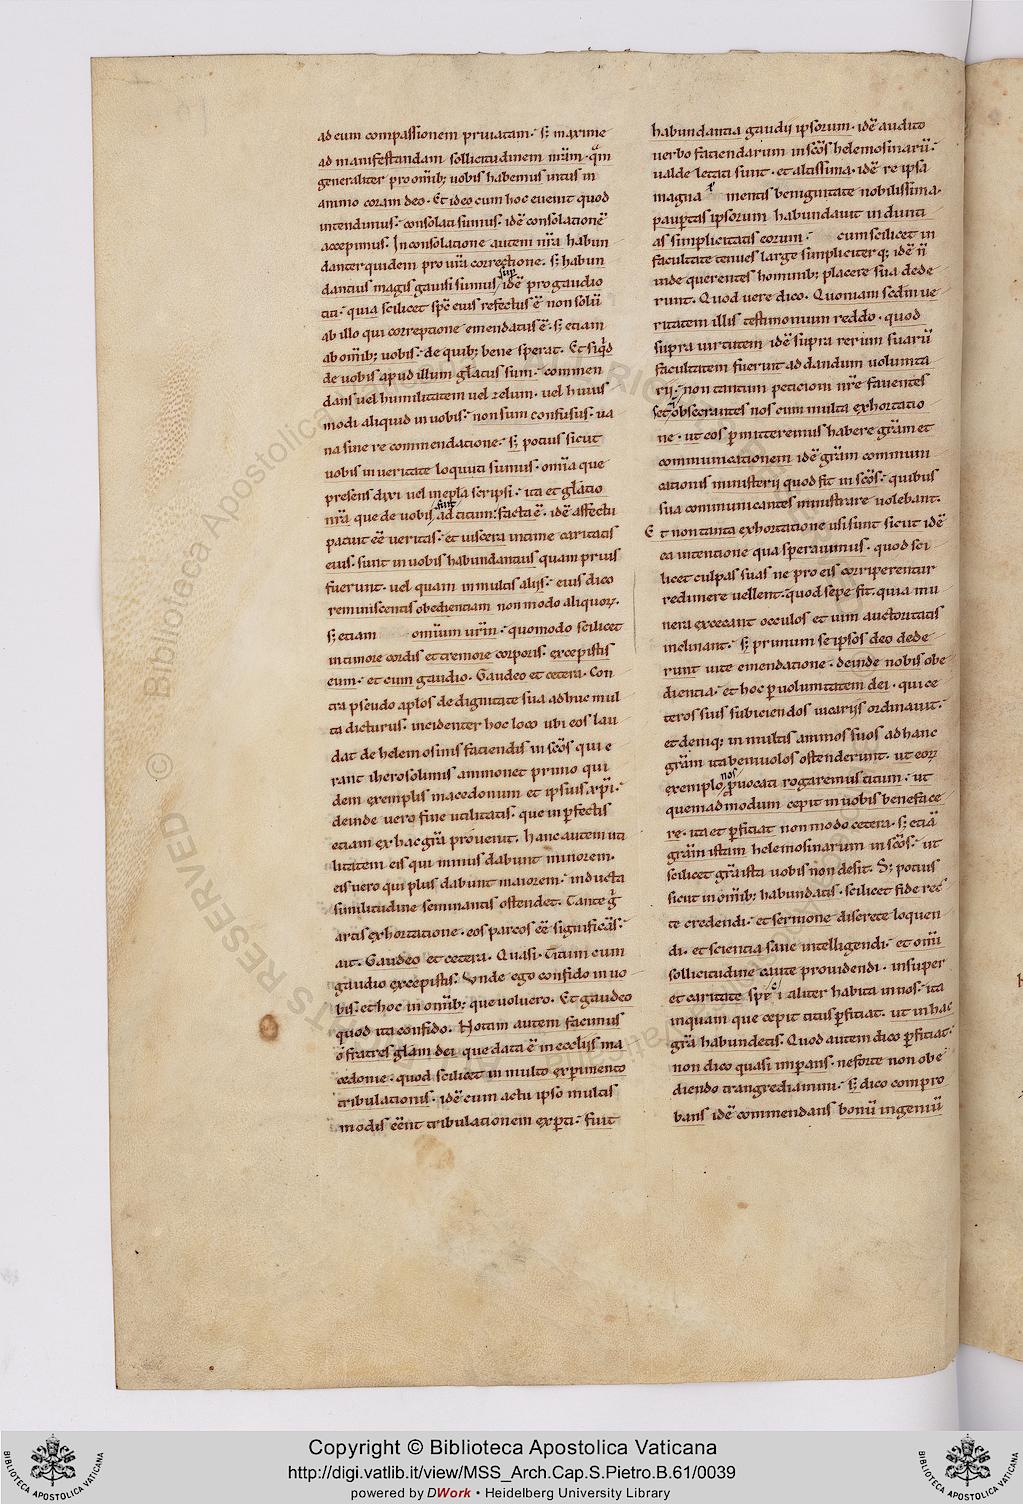 ad eum compassionem priuatam. sꝫ maxime
ad manifestandam sollicitudinem nr̄am. qm̄
generaliter pro om̄ibꝫ uobis habemus intus in
animo coram deo. Et ideo cum hoc euenit quod
intendimus. consolati sumus. idē consolationē
accepimus. In consolatione autem nr̄a habun
danter quidem pro ur̄a correctione. sꝫ habun
dantius magis gauisi sumus sup idē pro gaudio
titi. quia scilicet spē eius refectus ē non solū
ab illo qui correptione emendatus ē. sꝫ etiam
ab om̄ibꝫ uobis. de quibꝫ bene sperat. Et siqd̄
de uobis apud illum gl̄atus sum. commen
dans uel humilitatem uel zelum. uel huius
modi aliquid in uobis. non sum confusus. ua
na sine re commendatione. sꝫ potius sicut
uobis in ueritate loquuti sumus. om̄ia que
presens dixi uel in epl̄a scripsi. ita et gl̄atio
nr̄a que de uobis fuit ad titum. facta ē. idē affectu
patuit eē ueritas. et uiscera intime caritatis
eius. sunt in uobis habundantius quam prius
fuerunt. uel quam in multis aliis. eius dico
reminiscentis obedientiam non modo aliquoꝝ.
sꝫ etiam omnium ur̄m. quomodo scilicet
in timore cordis et tremore corporis. excepistis
eum. et cum gaudio. Gaudeo et cetera. Con
tra pseudo apl̄os de dignitate sua adhuc mul
ta dicturus. incidenter hoc loco ubi eos lau
dat de helemosinis faciendis in sc̄os qui e
rant iherosolimis ammonet primo qui
dem exemplis macedonum et ipsius xp̄i.
deinde uero fine utilitatis. que in pfectis
etiam ex hac gr̄a prouenit. Hanc autem uti
litatem eis qui minus dabunt minorem.
eis uero qui plus dabunt maiorem. inducta
similitudine seminantis ostendet. Tante g̊
artis exhortatione. eos parcos eē significās.
ait. Gaudeo et cetera. Quasi. Titum cum
gaudio excepistis. Unde ego confido in uo
bis. et hoc in om̄ibꝫ que uoluero. Et gaudeo
quod ita confido. Notam autem facimus
o fratres gl̄am dei que data ē in eccliis ma
cedonie. quod scilicet in multo exꝑimento
tribulationis. idē cum actu ipso multis
modis eēnt tribulationem exꝑti. fuit
habundantia gaudii ipsorum. idē audito
uerbo faciendarum in sc̄os helemosinarū.
ualde letati sunt. et altissima. idē re ipsa
magna mentis benignitate nobilissima.
pauꝑtas ipsorum habundauit in diuiti
as simplicitatis eorum. cum scilicet in
facultate tenues large simpliciterqꝫ idē n̄
inde querentes hominibꝫ placere sua dede
runt. Quod uere dico. Quoniam scdm ue
ritatem illis testimonium reddo. quod
supra uirtutem idē supra rerum suarū
facultatem fuerunt ad dandum uolunta
rii. non tantum peticioni nr̄e fauentes
set obsecrantes nos cum multa exhortatio
ne. ut eos ꝑmitteremus habere gr̄am et
communicationem idē gr̄am communi
cationis ministerii quod fit in sc̄os. quibus
sua communicantes ministrare uolebant.
Et non tanta exhortatione usi sunt sicut idē
ea intentione qua sperauimus. quod sci
licet culpas suas ne pro eis corriperentur
redimere uellent. quod sepe fit. quia mu
nera excecant occulos et uim auctoritatis
inclinant. sꝫ primum se ipsos deo dede
runt uite emendatione. deinde nobis obe
dientia. et hoc ꝑ uoluntatem dei. qui ce
teros suis subiciendos uicariis ordinauit.
et deniqꝫ in multis animos suos ad hanc
gr̄am ita beniuolos ostenderunt. ut eoꝝ
exemplo nos prouocati rogaremus titum. ut
quemadmodum cepit in uobis beneface
re. ita et ꝑficiat non modo cetera. sꝫ etiā
gr̄am istam helemosinarum in sc̄os. ut
scilicet gr̄a ista uobis non desit. Sꝫ potius
sicut in om̄ibꝫ habundatis. scilicet fide rec
te credendi. et sermone discrete loquen
di. et scientia sane intelligendi. et om̄i
sollicitudine caute prouidendi. insuper
et caritate aliter habita in nos. ita
inquam que cepit titus ꝑficiat. ut in hac
gr̄a habundetis. Quod autem dico ꝑficiat.
non dico quasi imꝑans. ne forte non obe
diendo transgrediamini. sꝫ dico compro
bans idē commendans bonū ingeniū
Copyright © Biblioteca Apostolica Vaticana
http://digi.vatlib.it/view/MSS_Arch.Cap.S.Pietro.B.61/0039
powered by DWork • Heidelberg University Library